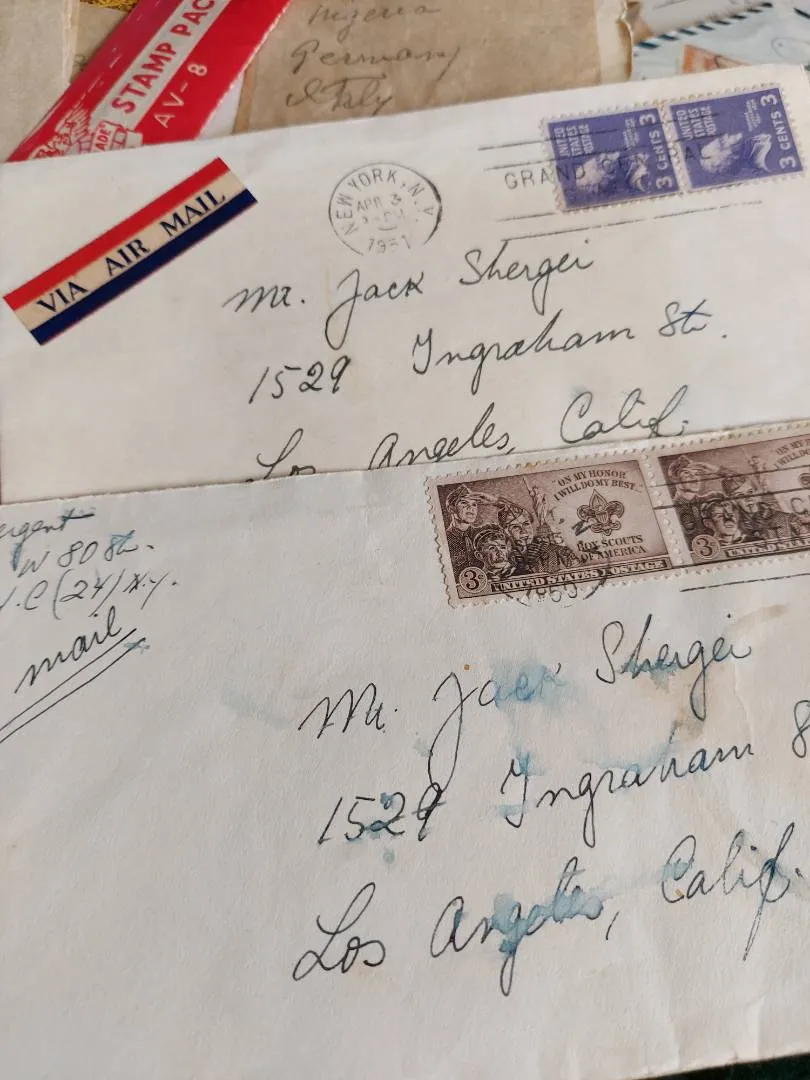 STAMP PAC
AV-8
Germany
Italy
VIA AIR MAIL
NEW YORK, N.Y.
APR 3
1951
GRAND CENTRAL
UNITED STATES POSTAGE
3 CENTS 3
UNITED STATES POSTAGE
3 CENTS 3
Mr. Jack Shergei
1529 Ingraham St.
Los Angeles, Calif.
"ON MY HONOR
I WILL DO MY BEST..."
BOY SCOUTS
OF AMERICA
3¢
UNITED STATES POSTAGE
"ON MY HO
I WILL DO
3¢
UNITED STAT
1950
ergent
W 80 St.
.C (24) N.Y.
mail
Mr. Jack Shergei
1529 Ingraham S
Los Angeles, Calif.